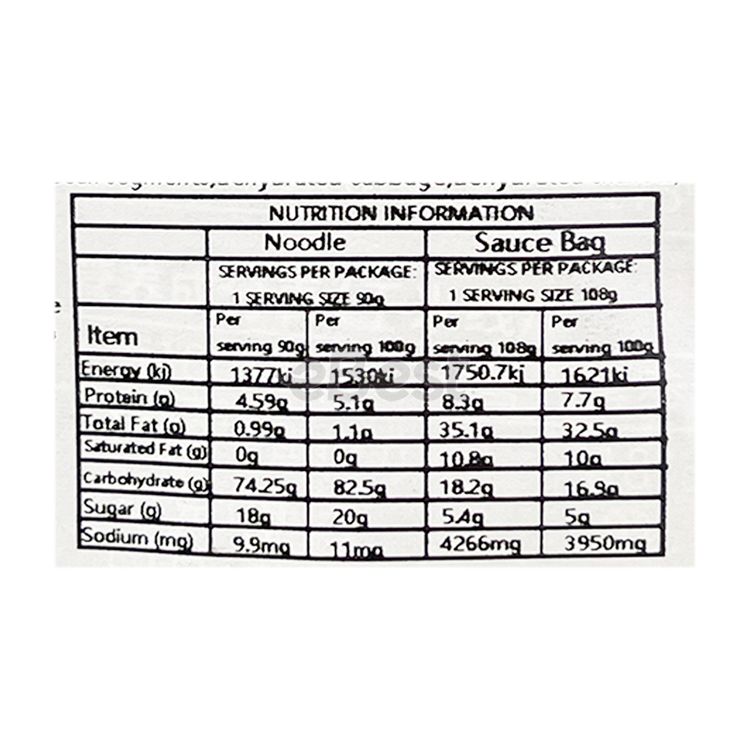 NUTRITION INFORMATION
Noodle Sauce Bag
SERVINGS PER PACKAGE: SERVINGS PER PACKAGE:
1 SERVING SIZE 90g 1 SERVING SIZE 108g
Item Per serving 90g Per serving 100g Per serving 108g Per serving 100g
Energy (kj) 1377kj 1530kj 1750.7kj 1621kj
Protein (g) 4.59g 5.1g 8.3g 7.7g
Total Fat (g) 0.99g 1.1g 35.1g 32.5g
Saturated Fat (g) 0g 0g 10.8g 10g
Carbohydrate (g) 74.25g 82.5g 18.2g 16.9g
Sugar (g) 18g 20g 5.4g 5g
Sodium (mg) 9.9mg 11mg 4266mg 3950mg
eBest